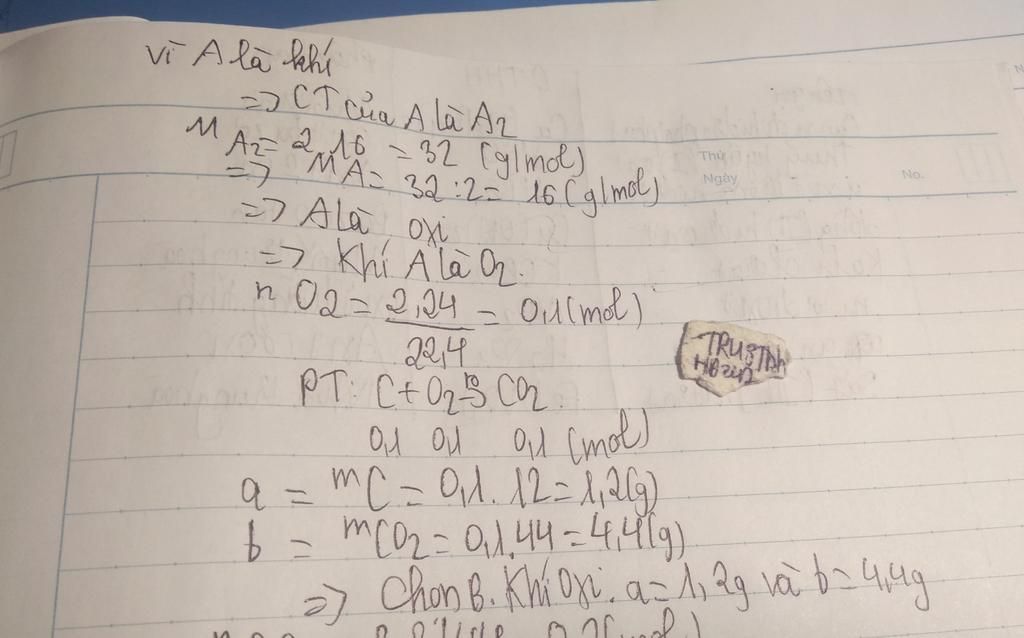 Vì A là khí
=> CT của A là A2
M A2 = 2.16 = 32 (g/mol)
=> MA = 32 : 2 = 16 (g/mol)
=> A là oxi
=> Khí A là O2.
n O2 = 2,24 / 22,4 = 0,1 (mol)
PT: C + O2 to→ CO2
0,1 0,1 0,1 (mol)
a = mC = 0,1. 12 = 1,2 (g)
b = mCO2 = 0,1.44 = 4,4 (g)
=> Chon B. Khí Oxi. a = 1,2g và b = 4,4g
Thứ
Ngày
No.